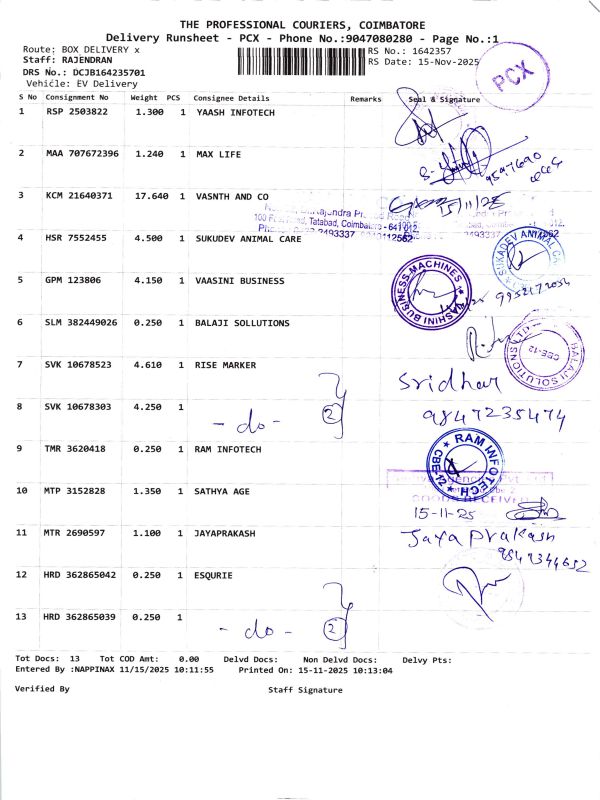 THE PROFESSIONAL COURIERS, COIMBATORE
Delivery Runsheet - PCX - Phone No.:9047080280 - Page No.:1
Route: BOX DELIVERY x
RS No.: 1642357
Staff: RAJENDRAN
RS Date: 15-Nov-2025
DRS No.: DCJB164235701
Vehicle: EV Delivery
PCX
S No Consignment No Weight PCS Consignee Details Remarks Seal & Signature
1 RSP 2503822 1.300 1 YAASH INFOTECH
2 MAA 707672396 1.240 1 MAX LIFE
3 KCM 21640371 17.640 1 VASNTH AND CO
15/11/25
100 Tatabad, Coimbatore - 641 012.
4 HSR 7552455 4.500 1 SUKUDEV ANIMAL CARE
SUKADEV ANIMAL
5 GPM 123806 4.150 1 VAASINI BUSINESS
VASHINI BUSINESS MACHINES
6 SLM 382449026 0.250 1 BALAJI SOLLUTIONS
BALAJI SOLUTIONS LTD
CBE-12
7 SVK 10678523 4.610 1 RISE MARKER
Sridhar
8 SVK 10678303 4.250 1
- do - 2
9847235474
9 TMR 3620418 0.250 1 RAM INFOTECH
RAM INFOTECH
CBE-12
10 MTP 3152828 1.350 1 SATHYA AGE
GOODS RECEIVED
15-11-25
11 MTR 2690597 1.100 1 JAYAPRAKASH
Jaya Prakash
9847344652
12 HRD 362865042 0.250 1 ESQURIE
13 HRD 362865039 0.250 1
- do - 2
Tot Docs: 13 Tot COD Amt: 0.00 Delvd Docs: Non Delvd Docs: Delvy Pts:
Entered By :NAPPINAX 11/15/2025 10:11:55 Printed On: 15-11-2025 10:13:04
Verified By Staff Signature